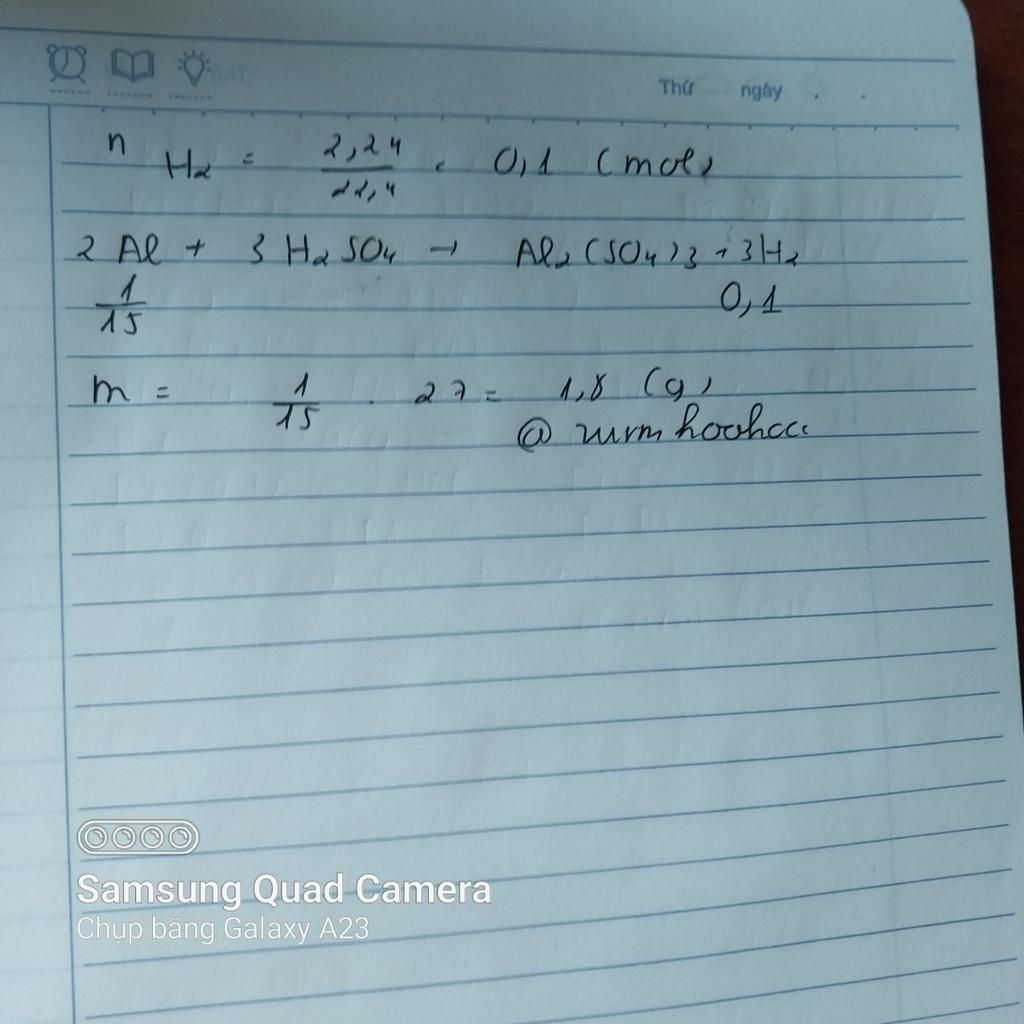 Thứ ngày . .
n H₂ = 2,24 / 22,4 = 0,1 (mol)
2 Al + 3 H₂SO₄ → Al₂(SO₄)₃ + 3H₂
1/15 0,1
m = 1/15 . 27 = 1,8 (g)
@
Samsung Quad Camera
Chụp bằng Galaxy A23